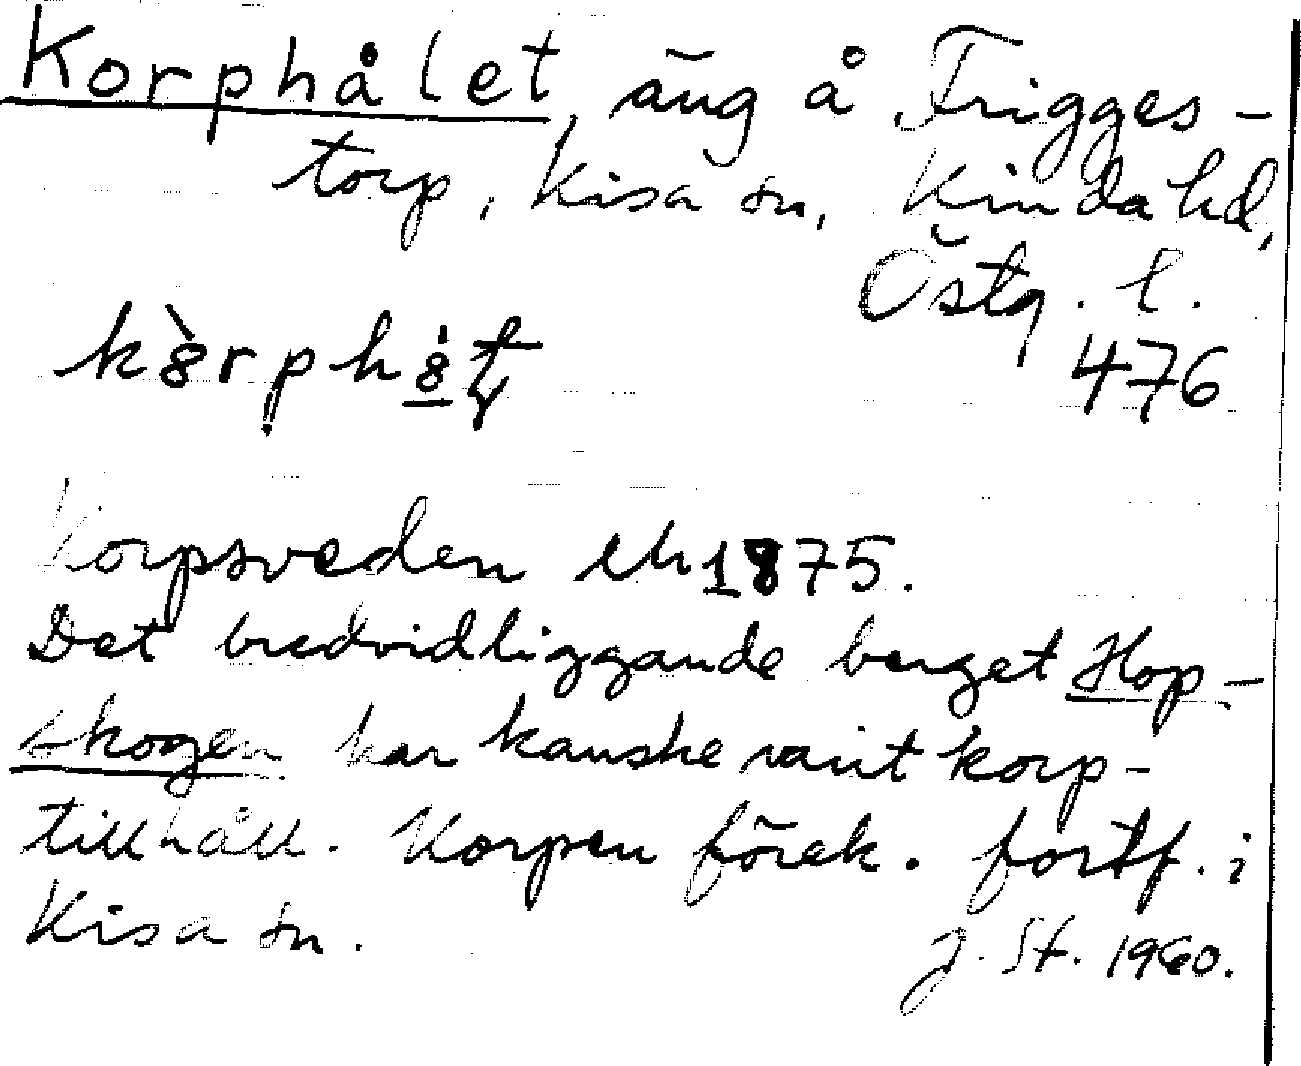 Korphålet, äng å Frigges-
torp, Kisa sn, Kinda hd,
Östg. l.
476
Korpsveden 1875.
Det bredvidliggande berget Hop-
skogen har kanske varit korp-
tillhåll. Korpen förek. fortf. i
Kisa sn.
J. St. 1960.